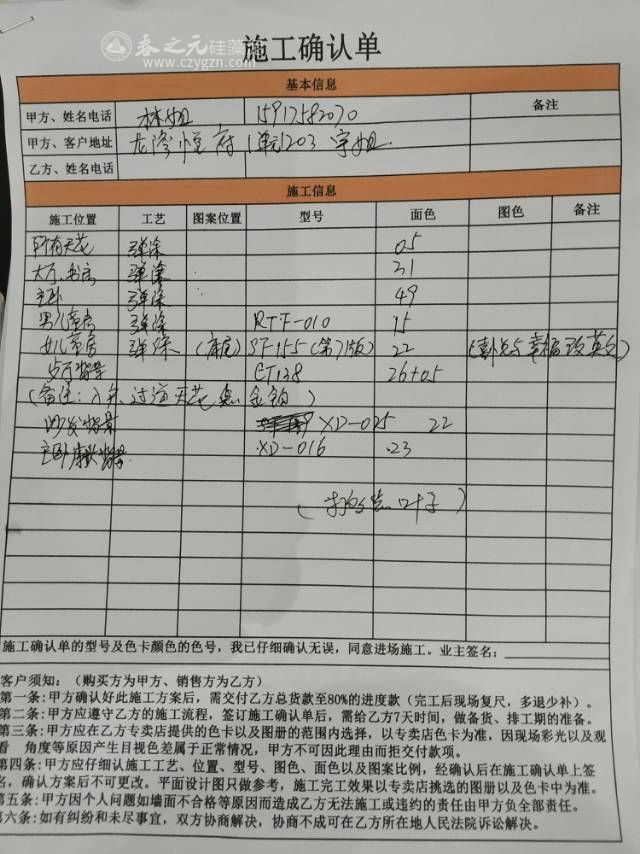 春之元硅藻
www.czygzn.com
施工确认单
基本信息
甲方、姓名电话 林姐 15917582070 备注
甲方、客户地址 龙湾悦府 1单元1203 宇姐
乙方、姓名电话
施工信息
施工位置 工艺 图案位置 型号 面色 图色 备注
所有天花 弹涂 05
大厅、书房 弹涂 31
主卧 弹涂 49
男儿童房 弹涂 RTF-010 15
女儿童房 弹涂 (床底) (第71版) 22
背景 CT138 26+05
(备注: 过道天花 金铂)
沙发背景 XD-025 22
主卧床头背景 XD-016 23
叶子)
施工确认单的型号及色卡颜色的色号，我已仔细确认无误，同意进场施工。业主签名：
客户须知：（购买方为甲方、销售方为乙方）
第一条:甲方确认好此施工方案后，需交付乙方总货款至80%的进度款（完工后现场复尺，多退少补）。
第二条：甲方应遵守乙方的施工流程，签订施工确认单后，需给乙方7天时间，做备货、排工期的准备。
第三条：甲方应在乙方专卖店提供的色卡以及图册的范围内选择，以专卖店色卡为准，因现场彩光以及观
看 角度等原因产生目视色差属于正常情况，甲方不可因此理由而拒交付款项。
第四条：甲方应仔细施工工艺、位置、型号、图色、面色以及图案比例，经确认后在施工确认单上签
名，确认方案后不可更改。平面设计图只做参考，施工完工效果以专卖店挑选的图册以及色卡中为准。
第五条：甲方因个人问题如墙面不合格等原因而造成乙方无法施工或违约的责任由甲方负全部责任。
第六条：如有纠纷和未尽事宜，双方协商解决，协商不成可在乙方所在地人民法院诉讼解决。